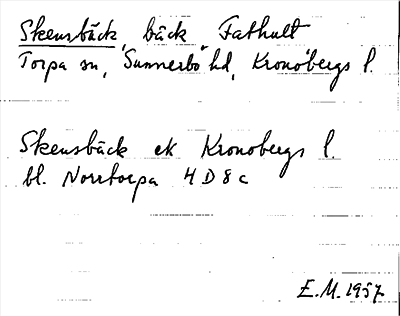 Skensbäck, bäck Fathult
Torpa sn, Sunnerbo hd, Kronobergs l.
Skensbäck ek Kronobergs l.
bl. Norrtorpa 4 D 8 c
E.M. 1957